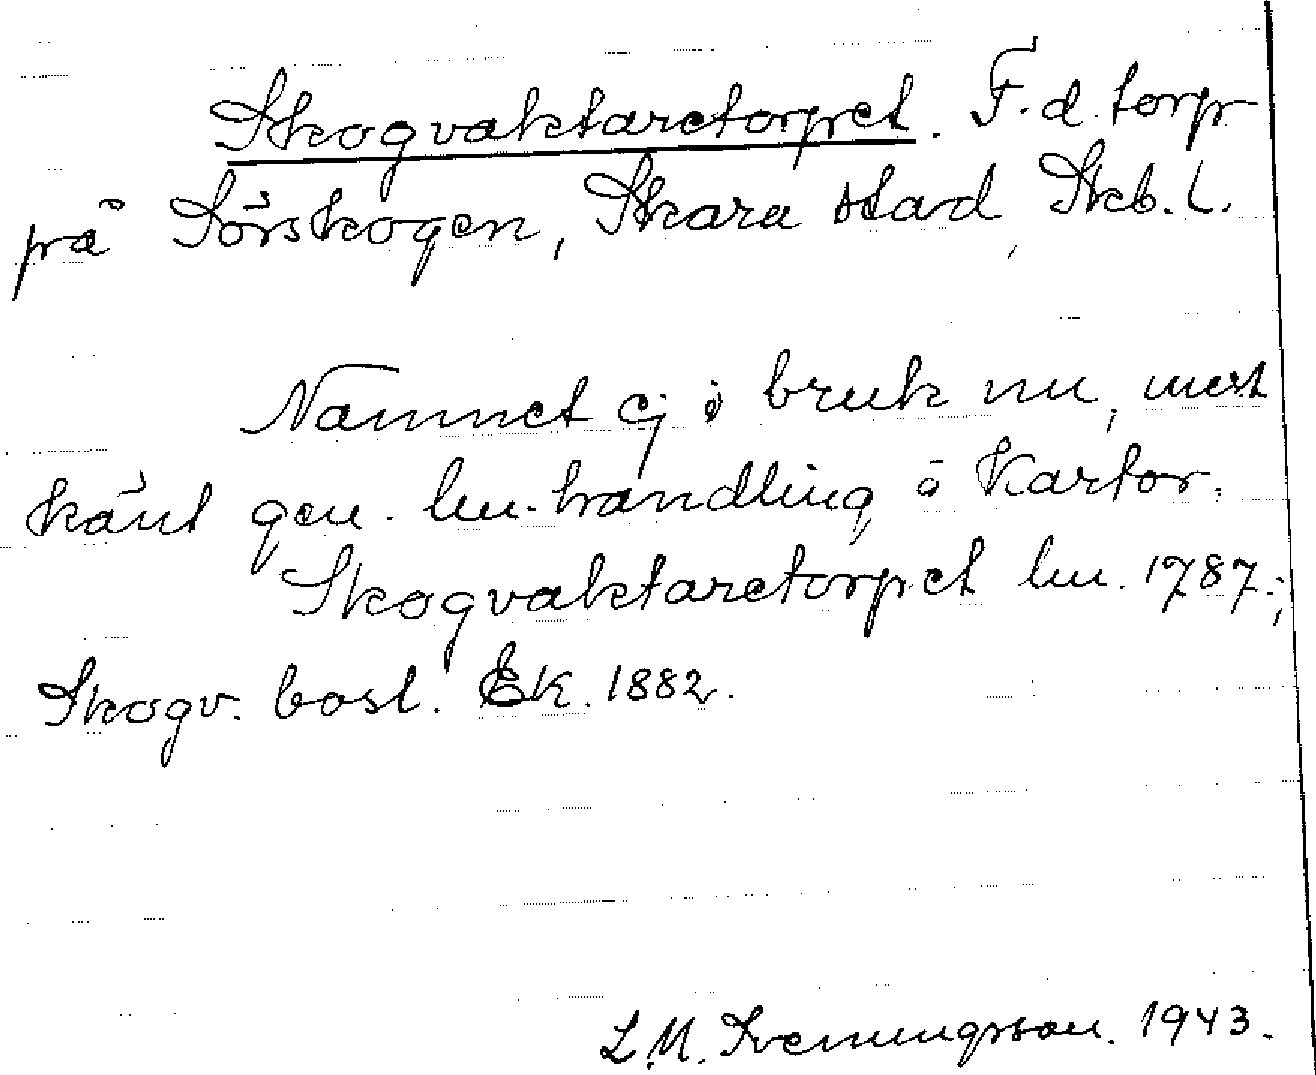 Skogvaktaretorpet. F.d. torp
på Sörskogen, Skara stad, Skb. l.
Namnet ej i bruk nu, mest
känt gen. lm. handling o kartor.
Skogvaktaretorpet lm. 1787.;
Skogv. bost. Ek. 1882.
L.M. Svenungsson. 1943.